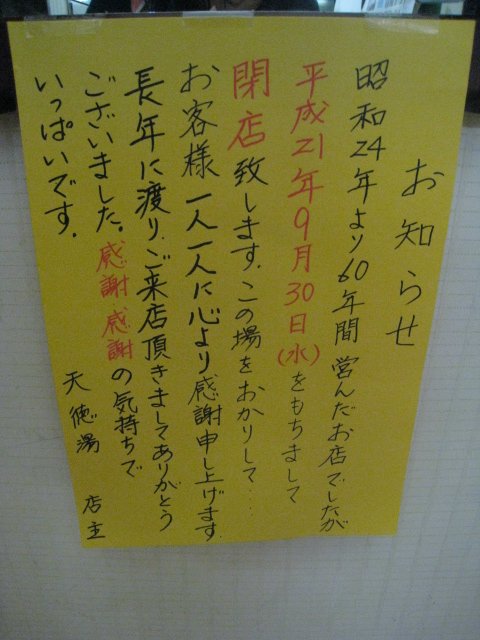 お知らせ
昭和24年より60年間営んだお店でしたが
平成21年9月30日(水)をもちまして
閉店致します.この場をおかりして....
お客様一人一人に心より感謝申し上げます.
長年に渡り.ご来店頂きましてありがとう
ございました。感謝感謝の気持ちで
いっぱいです.
天徳湯 店主